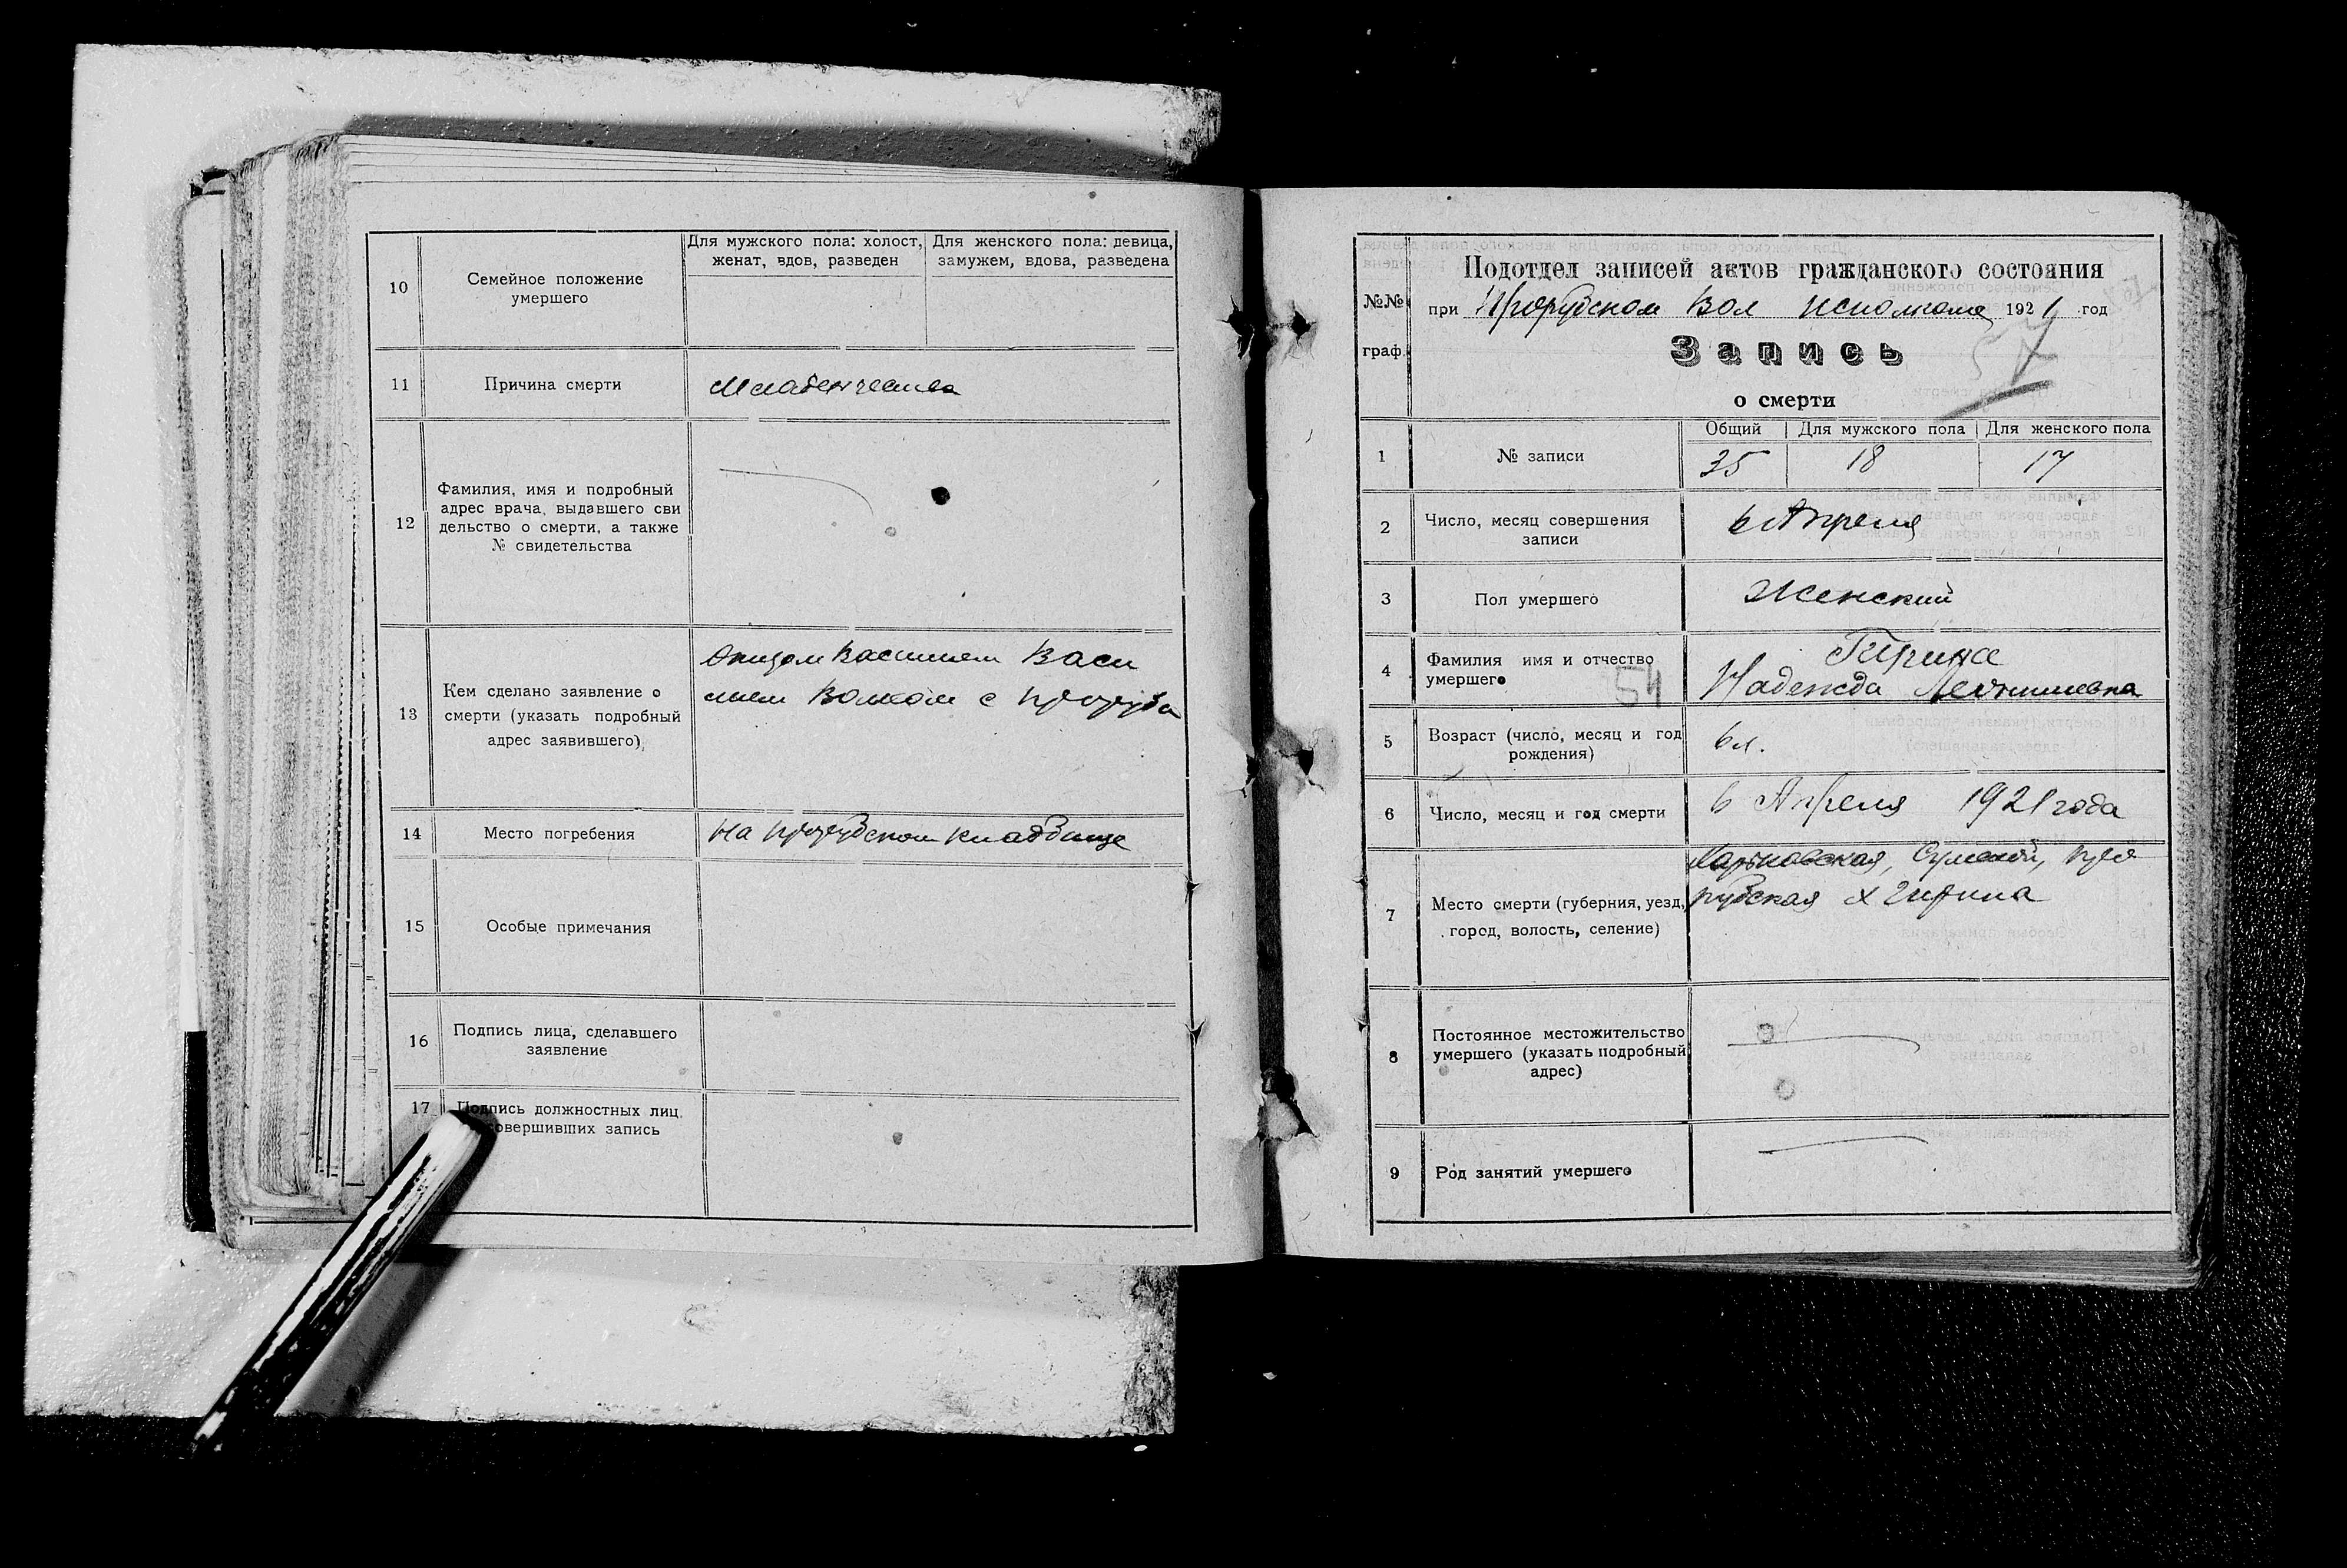 10
Семейное положение
умершего
Для мужского пола: холост,
женат, вдов, разведен
Для женского пола: девица,
замужем, вдова, разведена
11
Причина смерти
Младенческая
12
Фамилия, имя и подробный
адрес врача, выдавшего сви
дельство о смерти, а также
№ свидетельства
13
Кем сделано заявление о
смерти (указать подробный
адрес заявившего)
Отцом Василием Васи
лием Волком с Проруба
14
Место погребения
на прорубском кладбище
15
Особые примечания
16
Подпись лица, сделавшего
заявление
17
Подпись должностных лиц,
совершивших запись
№№
граф.
Подотдел записей актов гражданского состояния
при Прорубском Вол исполкоме 1921 год
57
Запись
о смерти
Общий
Для мужского пола
Для женского пола
1
№ записи
35
18
17
2
Число, месяц совершения
записи
6 Апреля
3
Пол умершего
Женский
4
Фамилия имя и отчество
умершего
54
Гирина
Надежда
5
Возраст (число, месяц и год
рождения)
6 л.
6
Число, месяц и год смерти
6 Апреля 1921 года
7
Место смерти (губерния, уезд,
город, волость, селение)
Харьковская, Сумской, про
рубская х Гирина
8
Постоянное местожительство
умершего (указать подробный
адрес)
9
Род занятий умершего